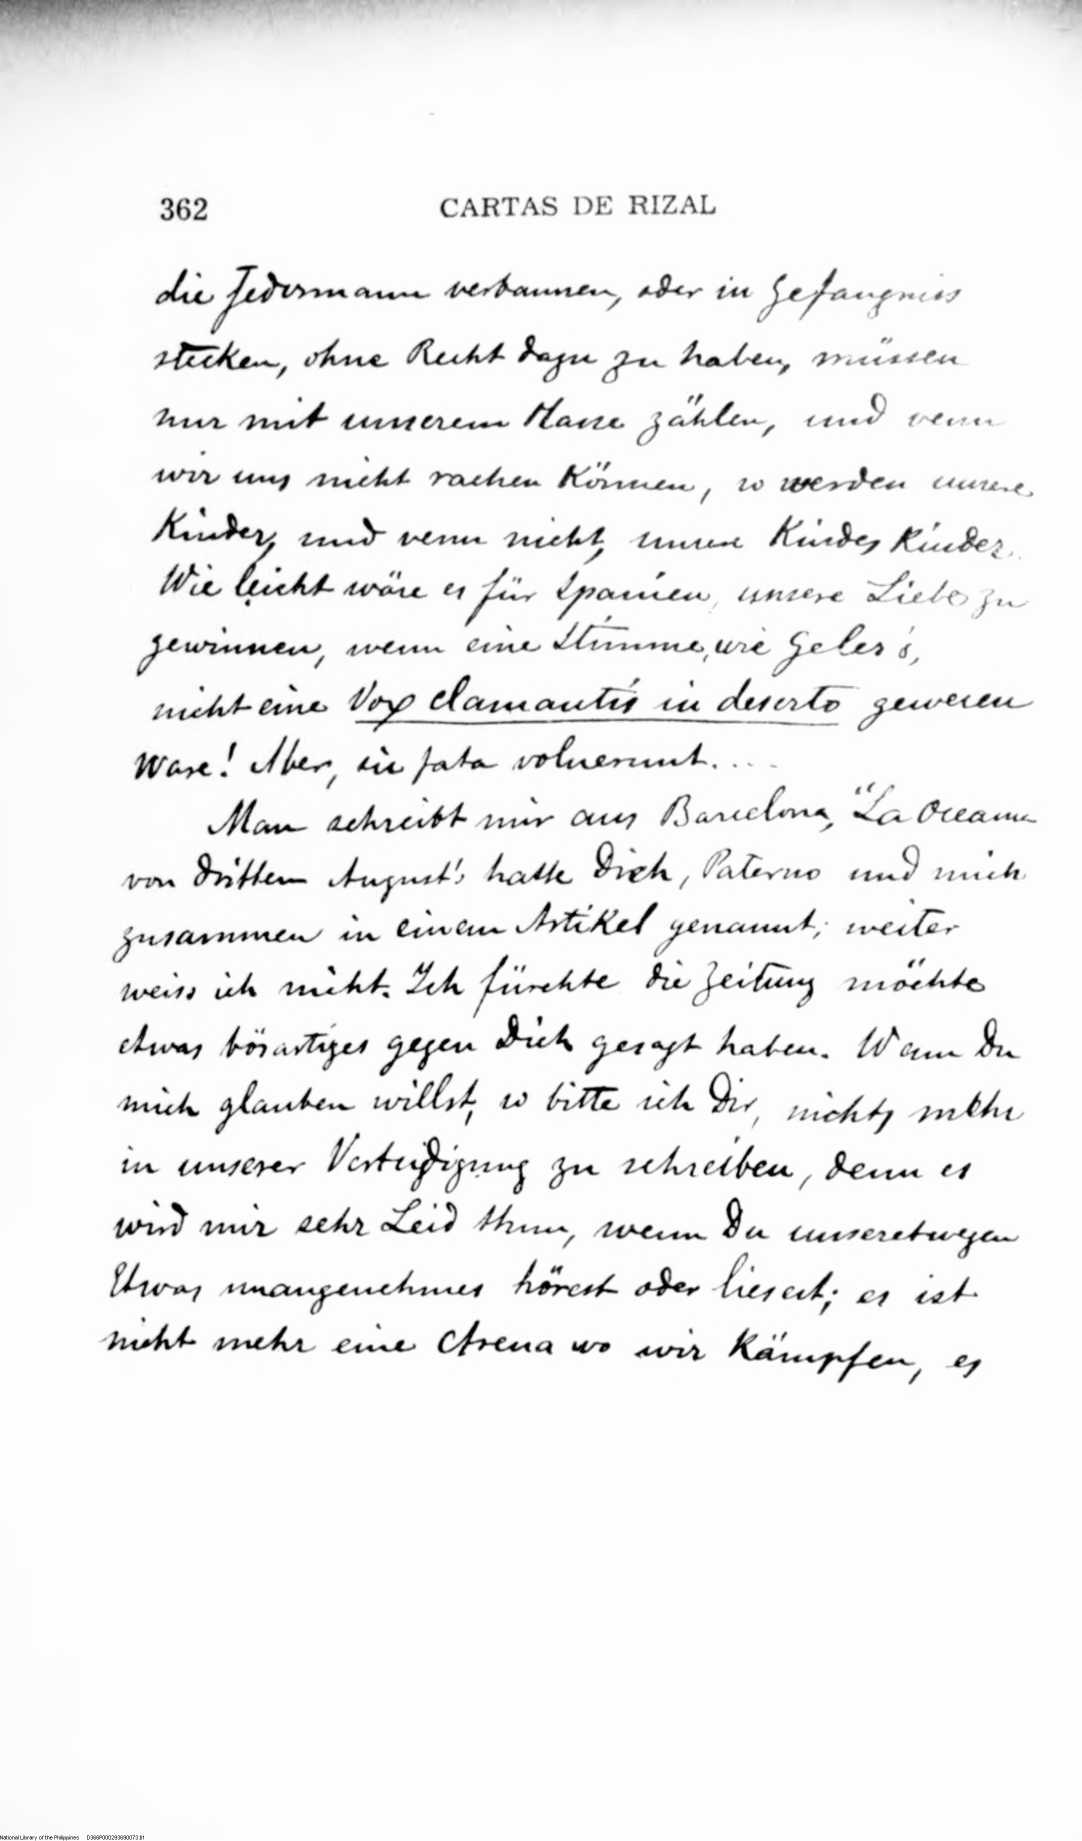 362 CARTAS DE RIZAL
die Jedermann verbannen, oder in Gefangniss
stecken, ohne Recht dazu zu haben, müssen
nur mit unserem Hasse zählen, und wenn
wir uns nicht rachen können, so werden unsere
Kinder, und wenn nicht, unsere Kindes Kinder.
Wie leicht wäre es für Spanien, unsere Liebe zu
gewinnen, wenn eine Stimme, wie Geler's,
nicht eine Vox clamantis in deserto gewesen
ware! Aber, sic fata voluerunt....
Man schreibt mir aus Barcelona, "La Oceania
von dritten August's hatte Dich, Paterno und mich
zusammen in einem Artikel genannt; weiter
weiss ich nicht. Ich fürchte die Zeitung möchte
etwas bösartiges gegen Dich gesagt haben. Wenn Du
mich glauben willst, so bitte ich Dir, nichts mehr
in unserer Verteidigung zu schreiben, denn es
wird mir sehr Leid thun, wenn Du unseretwegen
Etwas unangenehmes hörest oder liesest; es ist
nicht mehr eine Arena wo wir kämpfen, es
National Library of the Philippines